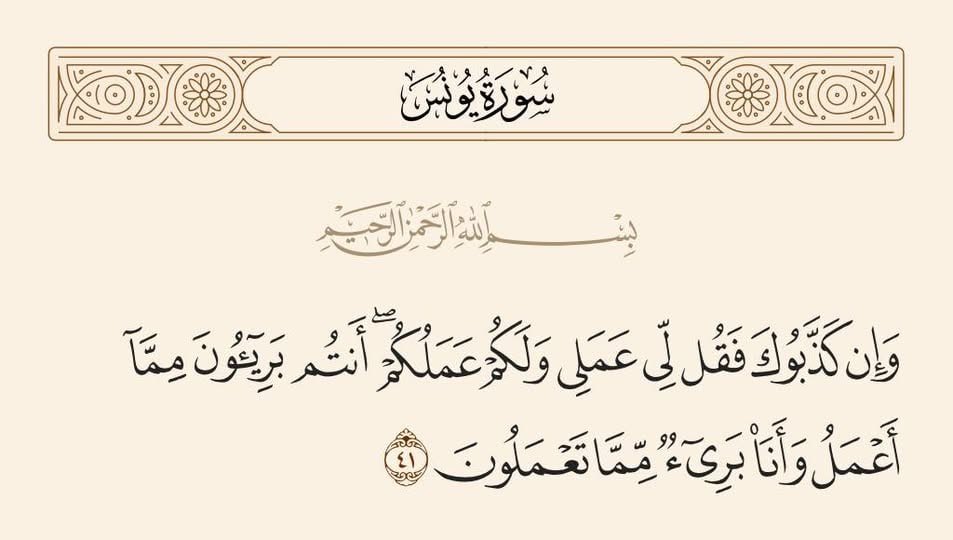 سُورَةُ يُونُسَ
بِسْمِ ٱللَّهِ ٱلرَّحْمَٰنِ ٱلرَّحِيمِ
وَإِن كَذَّبُوكَ فَقُل لِّى عَمَلِى وَلَكُمْ عَمَلُكُمْ ۖ أَنتُم بَرِيٓـُٔونَ مِمَّآ
أَعْمَلُ وَأَنَا۠ بَرِىٓءٌ مِّمَّا تَعْمَلُونَ ٤١